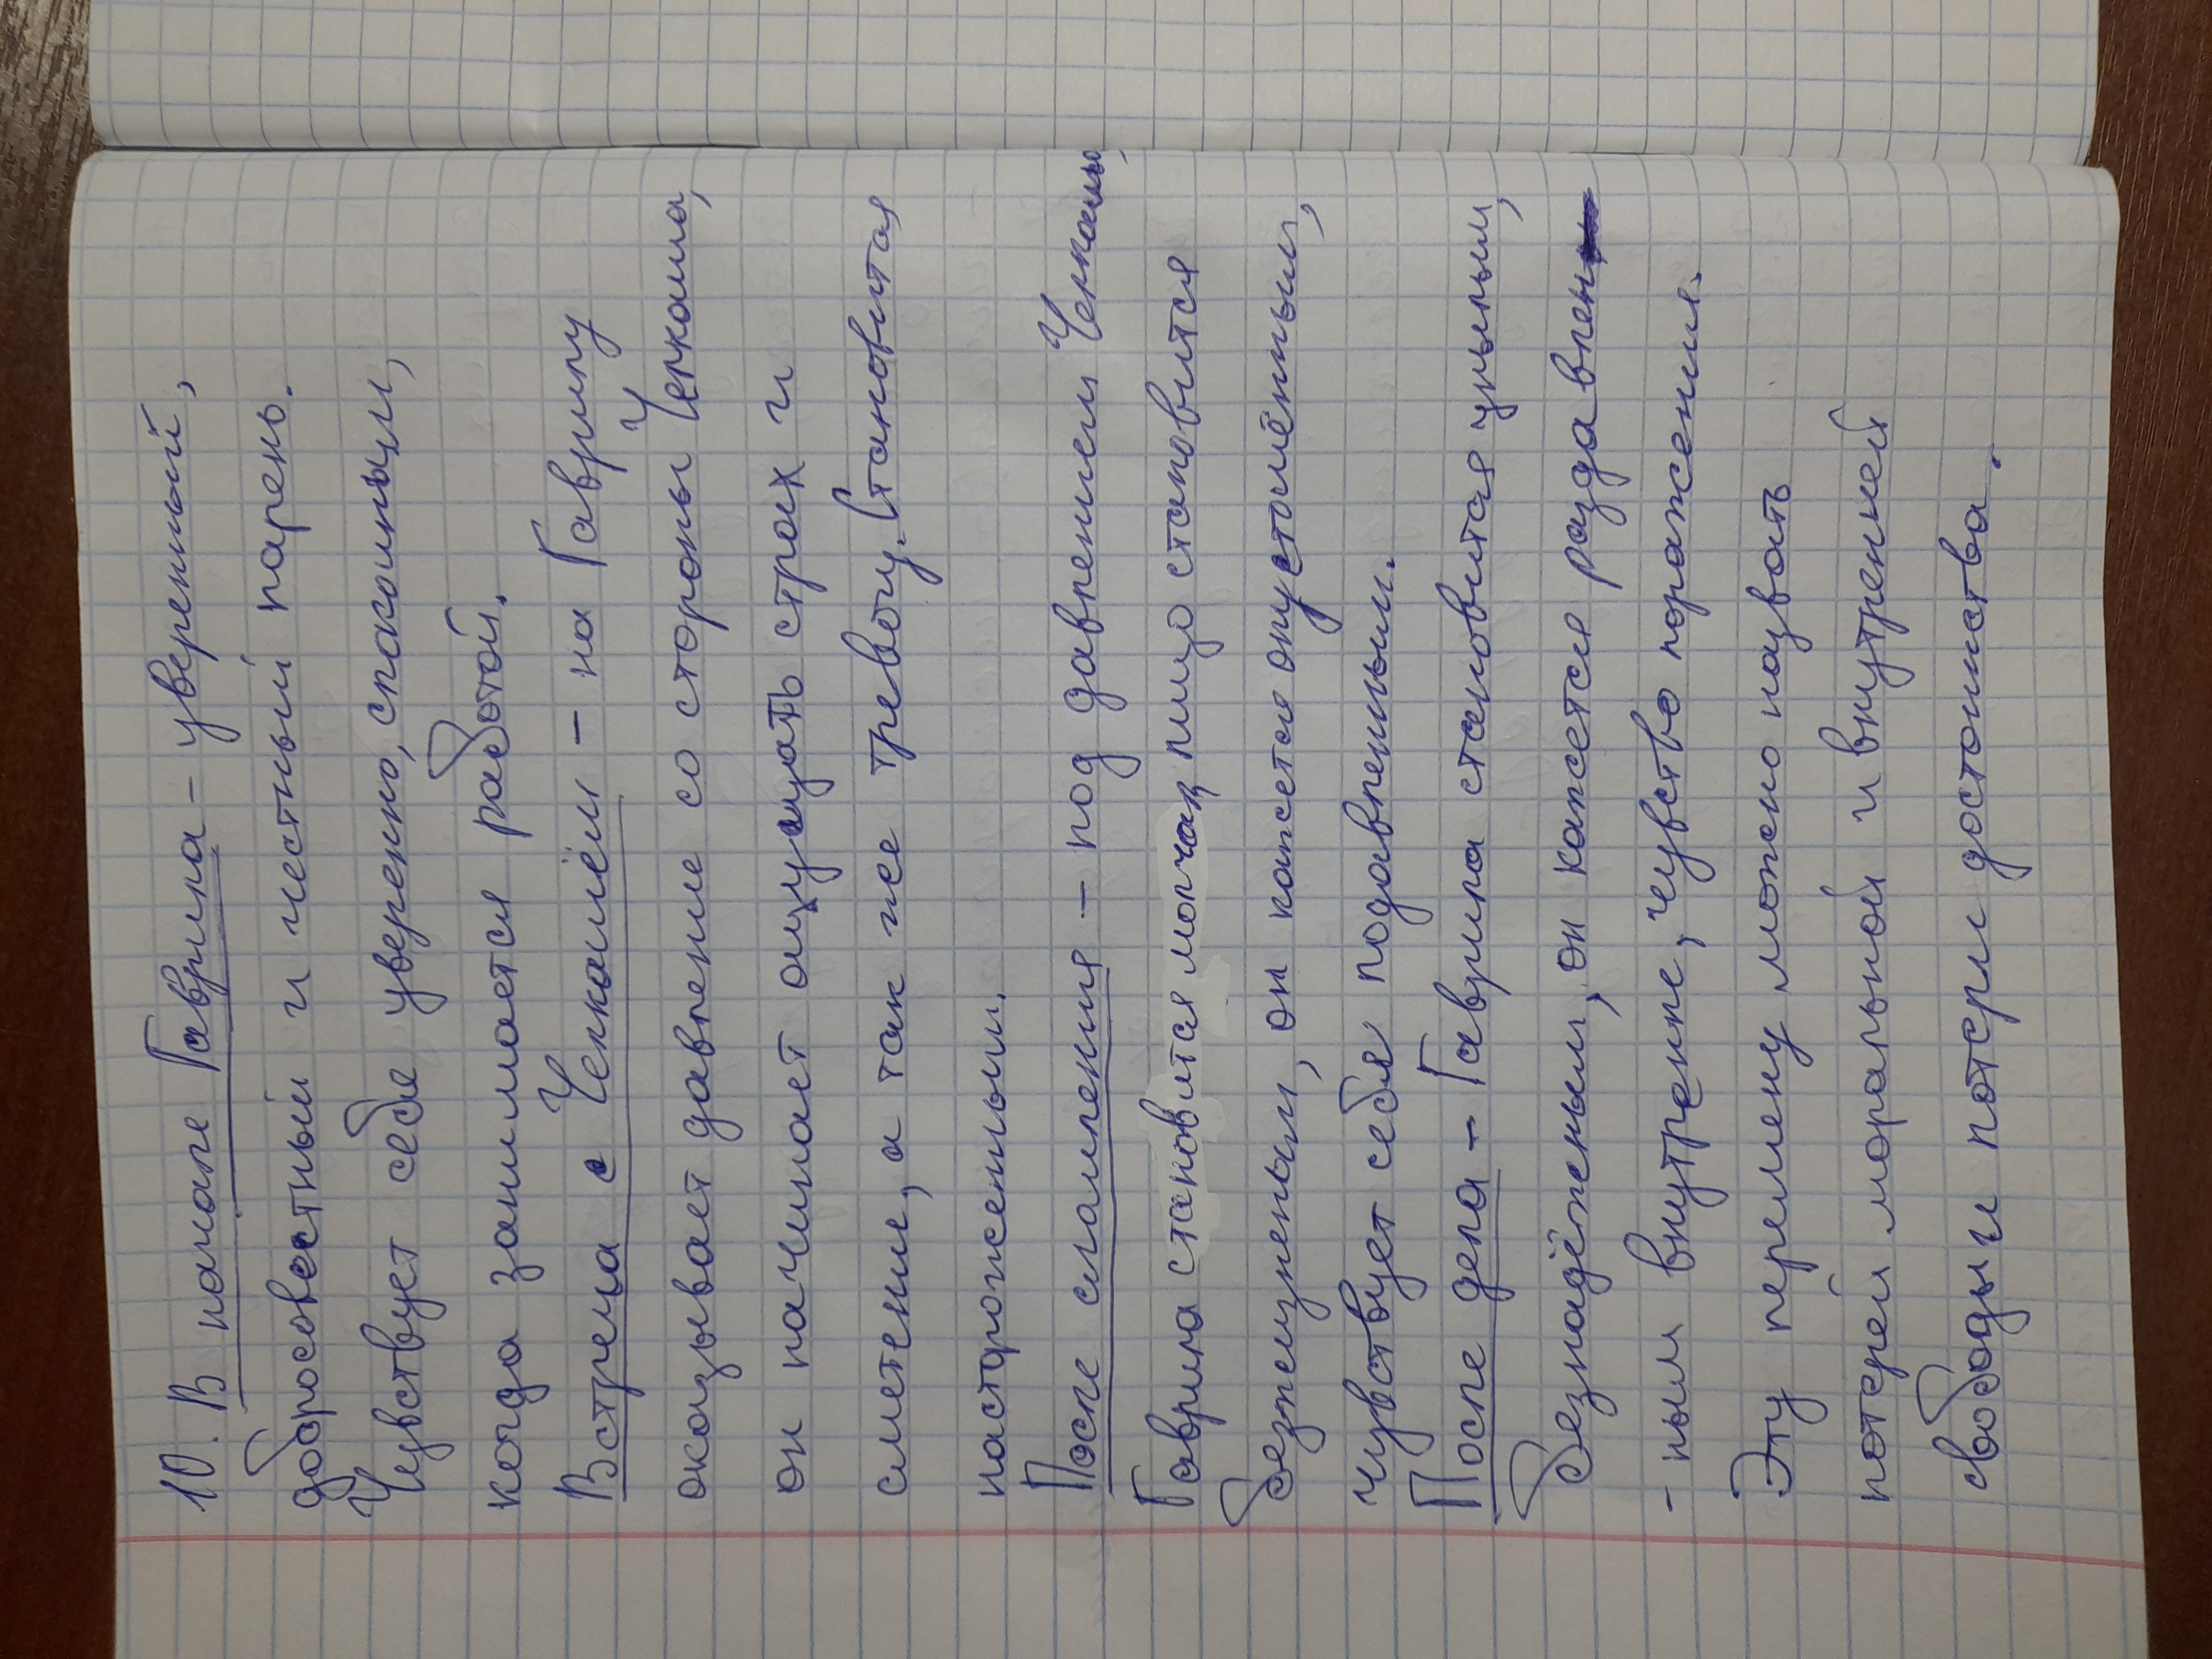 10. В начале Гаврила – уверенный,
добросовестный и честный парень.
Чувствует себя уверенно, спокойным,
когда занимается работой.
Встреча с Челкашём – на Гаврилу
оказывает давление со стороны Челкаша,
он начинает ощущать страх и
сметение, а так же тревогу. Становится
настороженным.
После сламления – под давлением Челкаша,
Гаврила становится молчалив, лицо становится
безжизненым, он кажется опустошённым,
чувствует себя подавленным.
После дела – Гаврила становится унылым,
безнадёжным, он кажется раздавлен
-ным внутренне, чувство поражения.
Эту перемену можно назвать
потерей моральной и внутренней
свободы и потери достоинства.